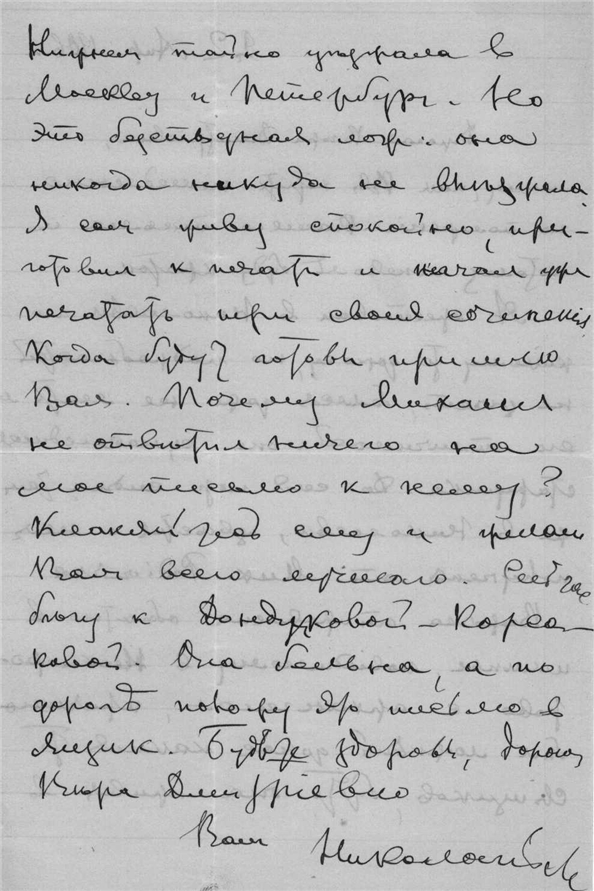 тайно уезжала в
Москву и Петербург. Но
это бесстыдная ложь: она
никогда никуда не выезжала.
Я сам живу спокойно, при-
готовил к печати и начал уже
печатать три своия сочинения
Когда будут готовы пришлю
Вам. Почему Михаил
не ответил ничего на
мое письмо к нему?
Кланяйтесь ему и желаю
Вам всего лучшаго. Сейчас
бегу к Дондуковой-Корса-
ковой. Она больна, а по
дороге положу это письмо в
ящик. Будьте здоровы, дорогая
Дмитриевна
Ваш